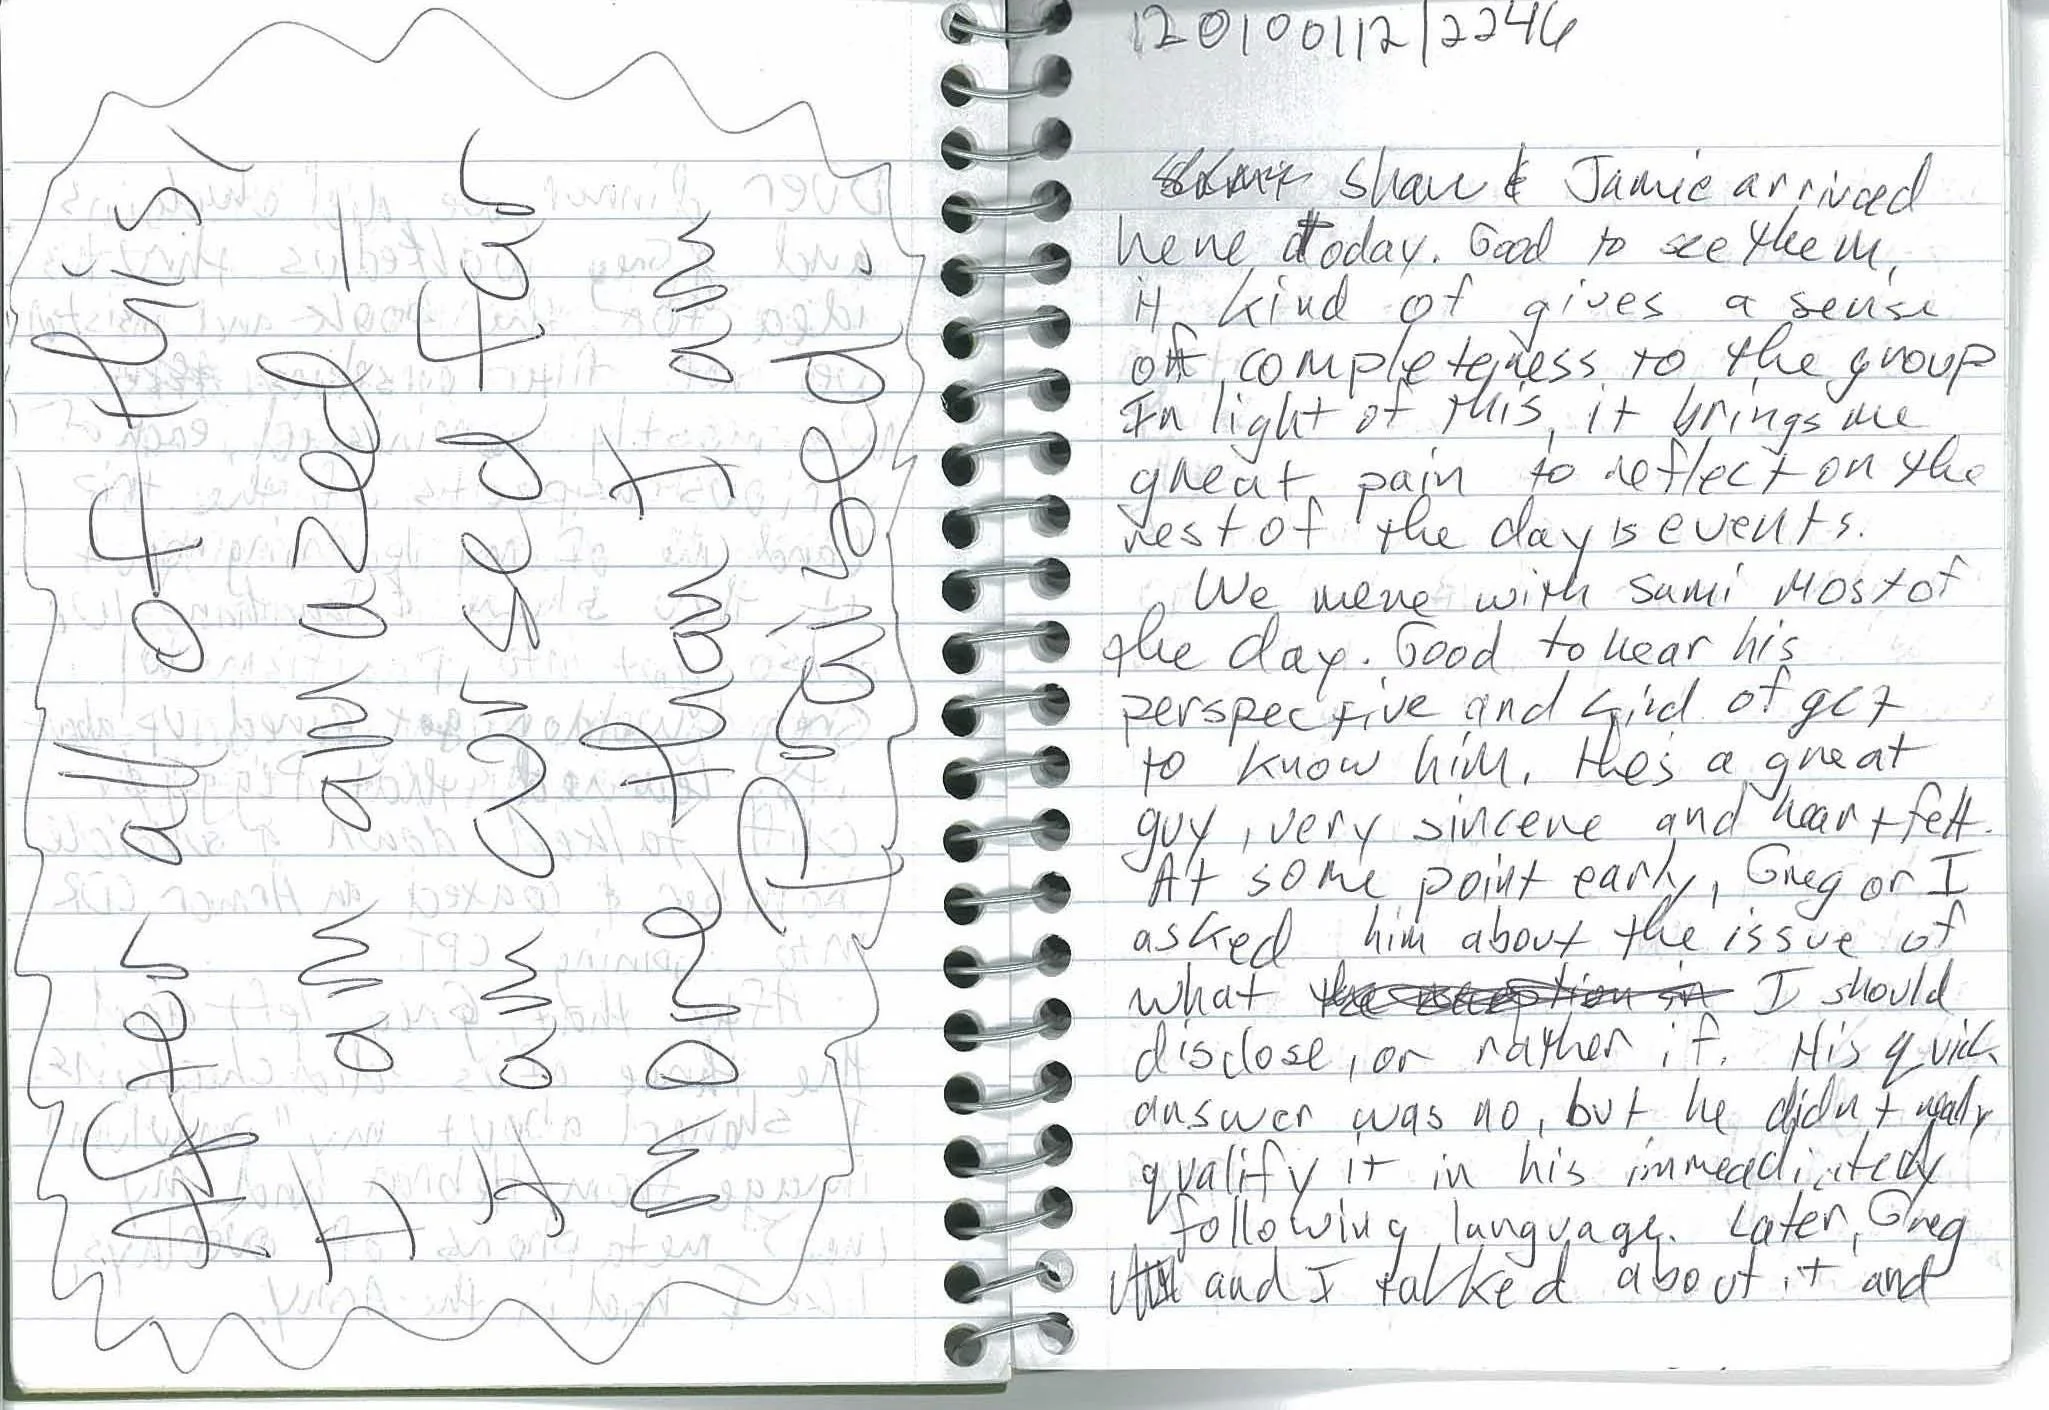 After all of this,
I am amazed -
I am cursed far
more than I am
Praised
120100112/2246
Shaw & Jamie arrived
here today. Good to see them,
it kind of gives a sense
of completeness to the group
In light of this, it brings me
great pain to reflect on the
rest of the day's events.
We were with Sami most of
the day. Good to hear his
perspective and kind of get
to know him. He's a great
guy, very sincere and heartfelt.
At some point early, Greg or I
asked him about the issue of
what I should
disclose, or rather if. His quick
answer was no, but he didn't really
qualify it in his immeadiately
following language. Later, Greg
and I talked about it and